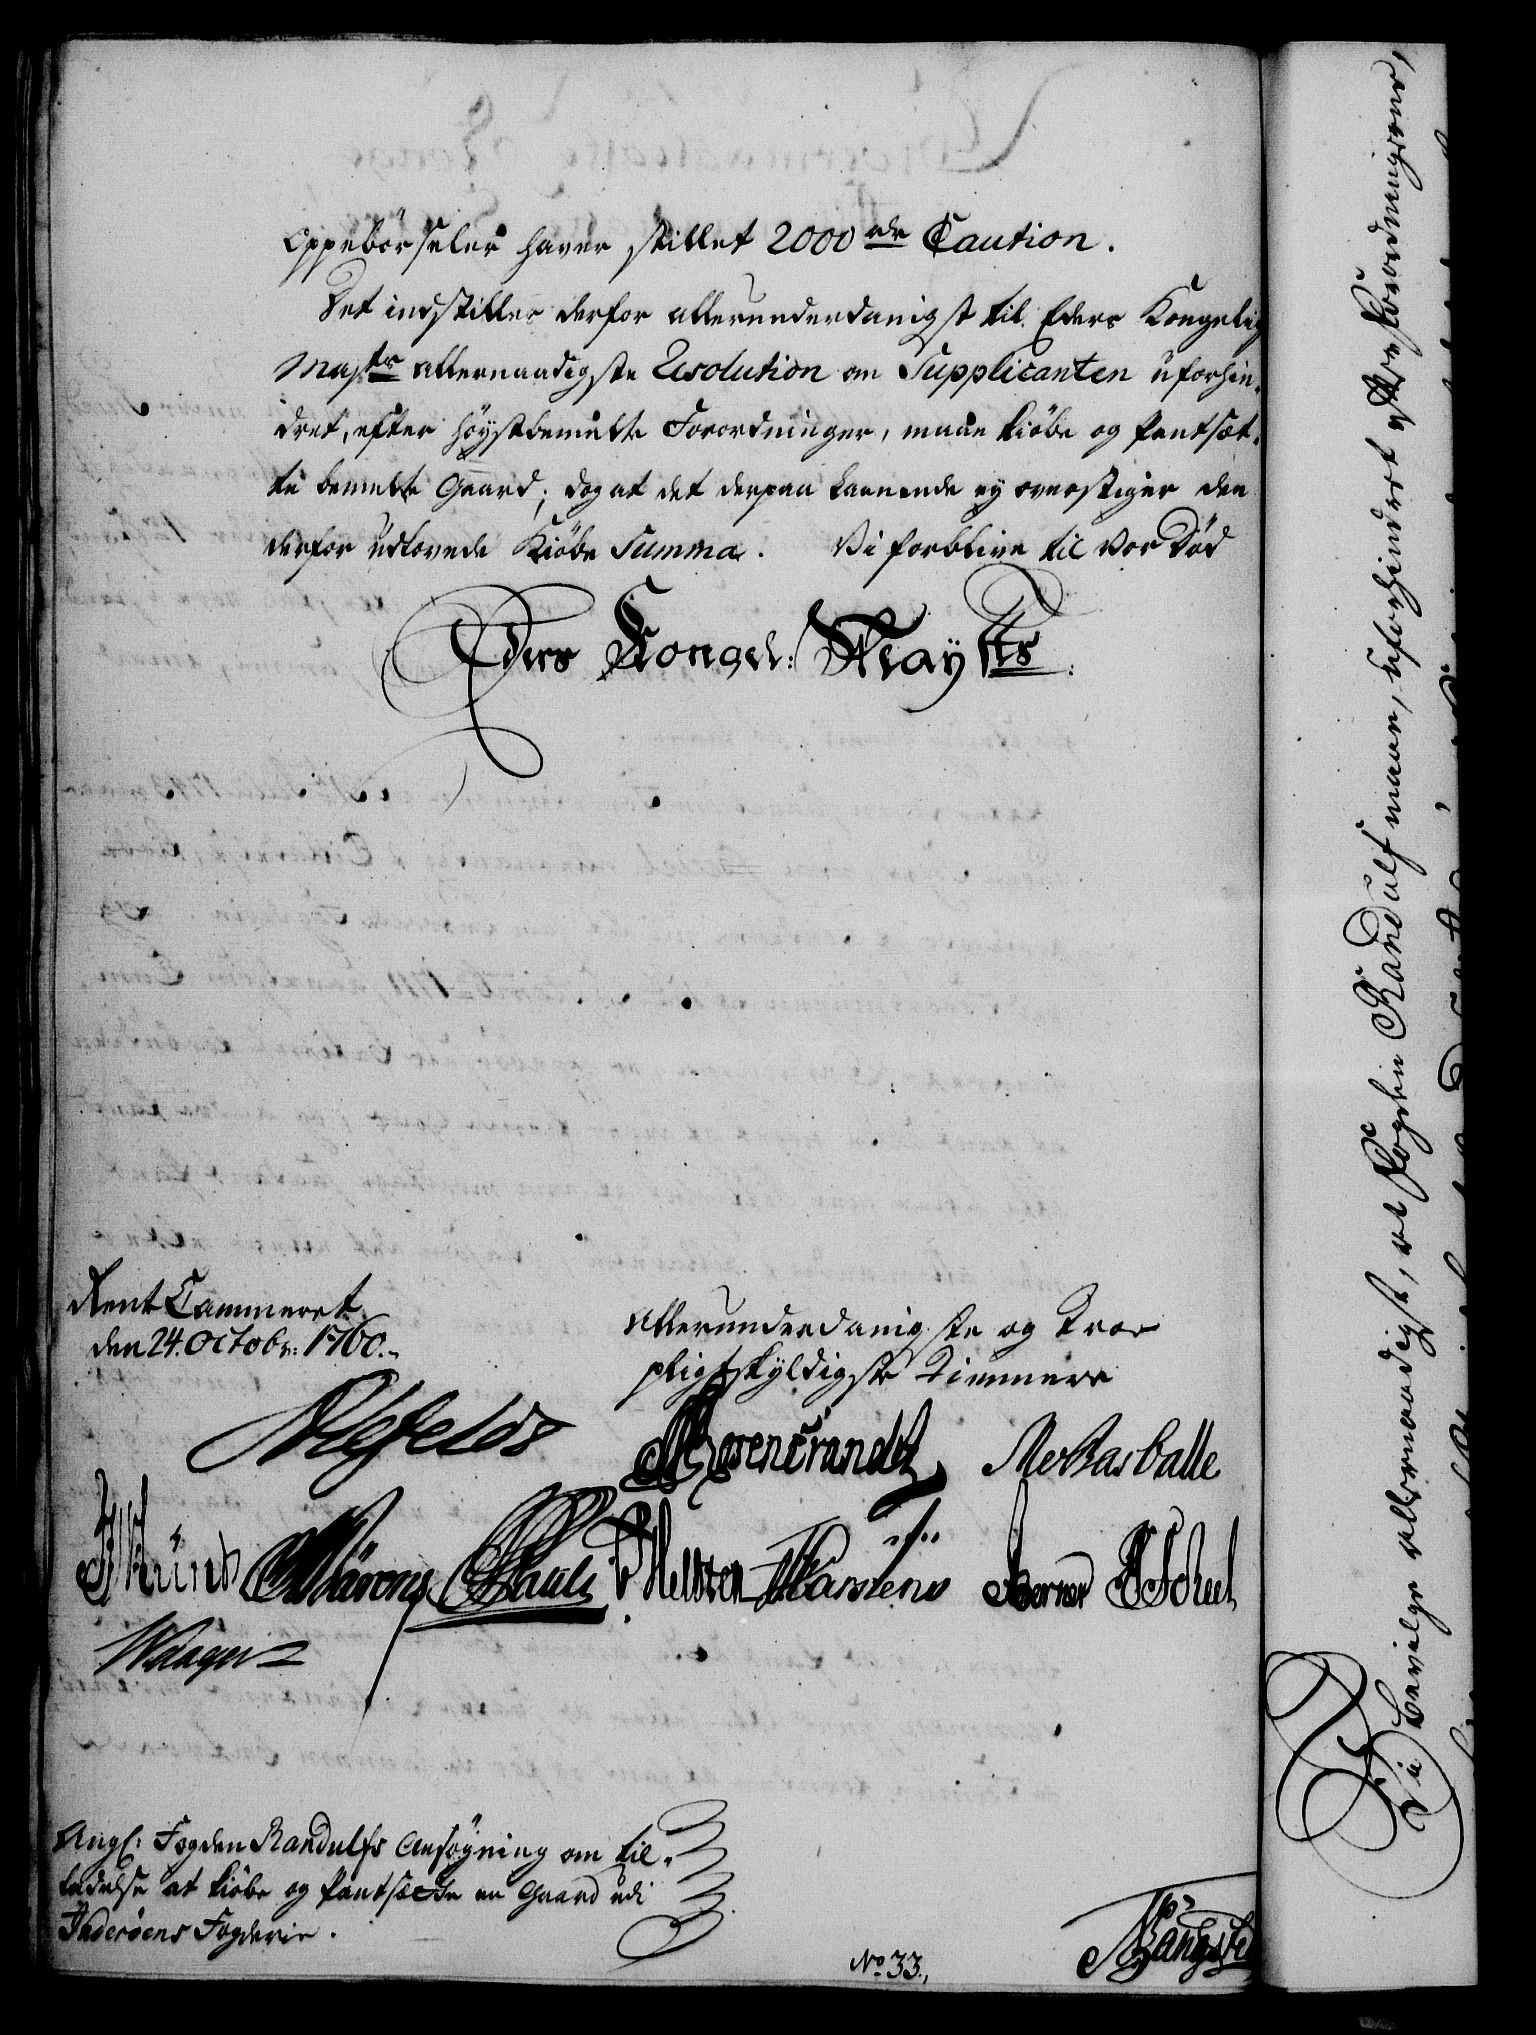 Oppebörseler haver stillet 2000 rdr Caution.
Det indstilles derfor allerunderdanigst til Eders Kongelig
Maj:ts allernaadigste Resolution om Supplicanten uforhin-
dret, efter höystbemelte Forordninger, maae kiöbe og pantsæt-
te bemelte Gaard; dog at det derpaa laanende ey overstiger den
derfor udlovede Kiöbe Summa. Vi forblive til vor Död
Eders Kongel: Mayts:
Rent Cammeret
den 24. Octobr: 1760.
Allerunderdanigste og Troe
pligtskyldigste Tienere
Alefeldt
Rosencrandtz
Karstens
Berner
Waager
Ang: Fogden Randulfs Ansögning om til-
ladelse at kiöbe og pantsætte en Gaard udi
Inderöens Fogderie.
No. 33.
Vi bevilge allernaadigst, at Fogden Randulf maae, uforhindret af Forordningerne,